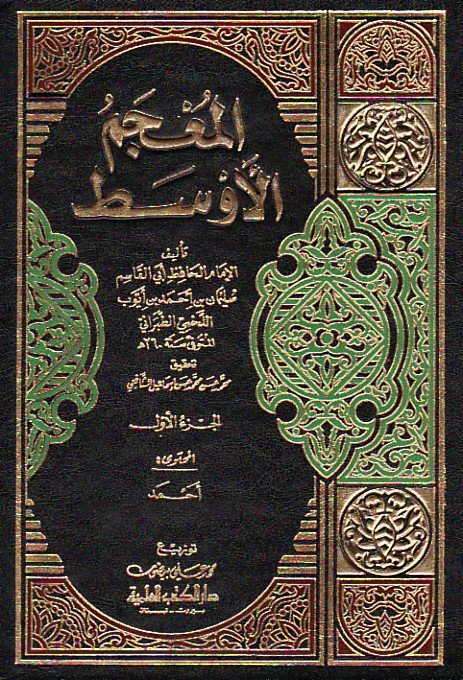 المُعْجَمُ
الأَوْسَط
تأليف
الإمام الحافظ أبي القاسم
سُليمان بن أحمد بن أيوب
اللخمي الطبراني
المتوفى سنة ٣٦٠هـ
تحقيق
محمد حسن محمد حسن إسماعيل الشافعي
الجزء الأول
المحتوى:
أحمد
توزيع
دار الكتب العلمية
بيروت - لبنان